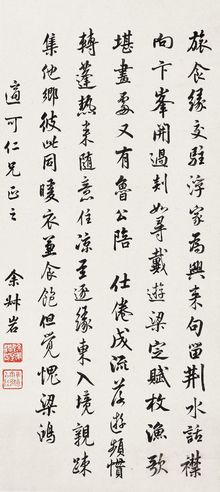 旅食緣交駐浮家為興來句留荊水話襟
向卞峯開過剡如尋戴遊梁定賦枚漁歌
堪畫處又有魯公陪 仕倦成流落遊頻慣
轉蓬熱來隨意住涼至逐緣東入境親疎
集他鄉彼此同暖衣兼食飽但覺愧梁鴻
適可仁兄正之
余叔岩